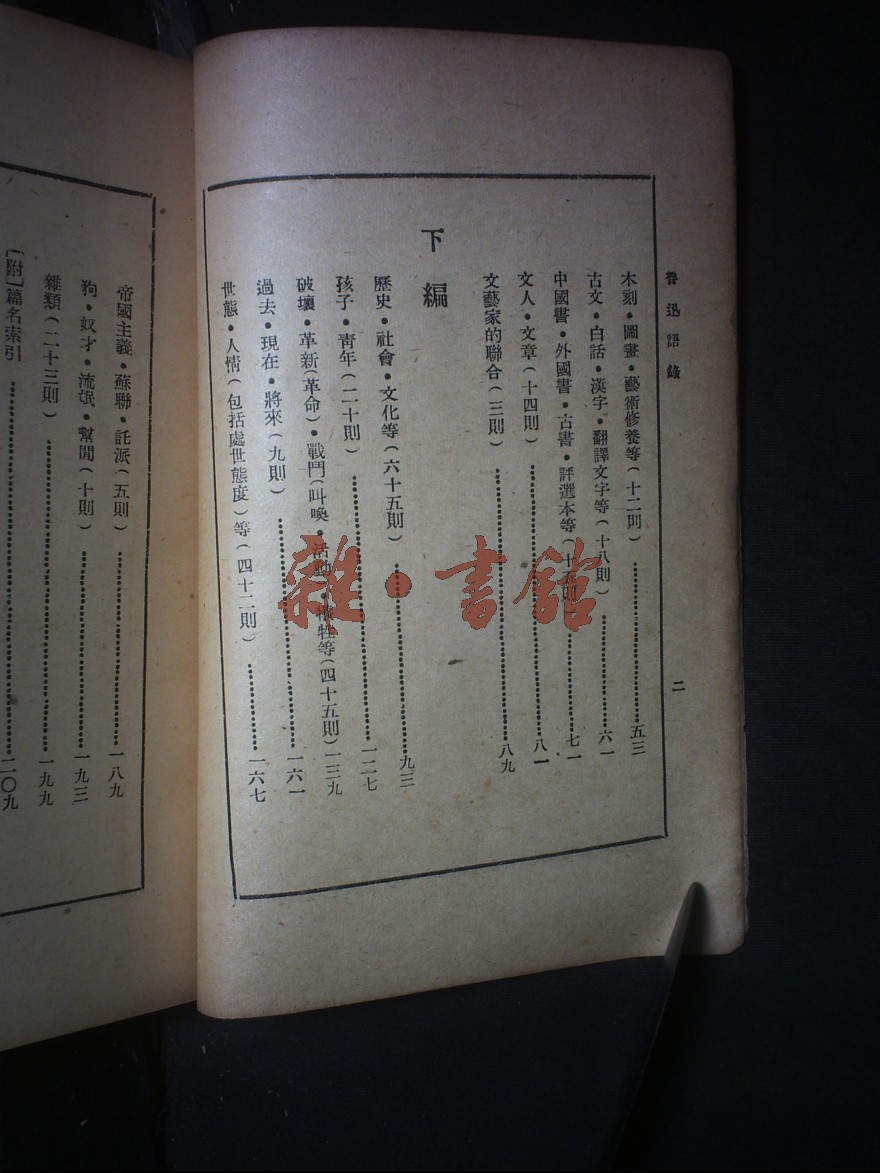 魯迅語錄
二
木刻・圖畫・藝術修養等（十二則）…………五三
古文・白話・漢字・翻譯文字等（十八則）…………六一
中國書・外國書・古書・評選本等（十五則）…………七一
文人・文章（十四則）…………八一
文藝家的聯合（三則）…………八九
下編
歷史・社會・文化等（六十五則）…………九三
孩子・靑年（二十則）…………一二七
破壞・革新（革命）・戰鬥（叫喚・活動・犧牲等（四十五則）一三九
過去・現在・將來（九則）…………一六一
世態・人情（包括處世態度）等（四十二則）…………一六七
帝國主義・蘇聯・託派（五則）…………一八九
狗・奴才・流氓・幫閒（十則）…………一九三
雜類（二十三則）…………一九九
〔附〕篇名索引…………二〇九
雜・書館